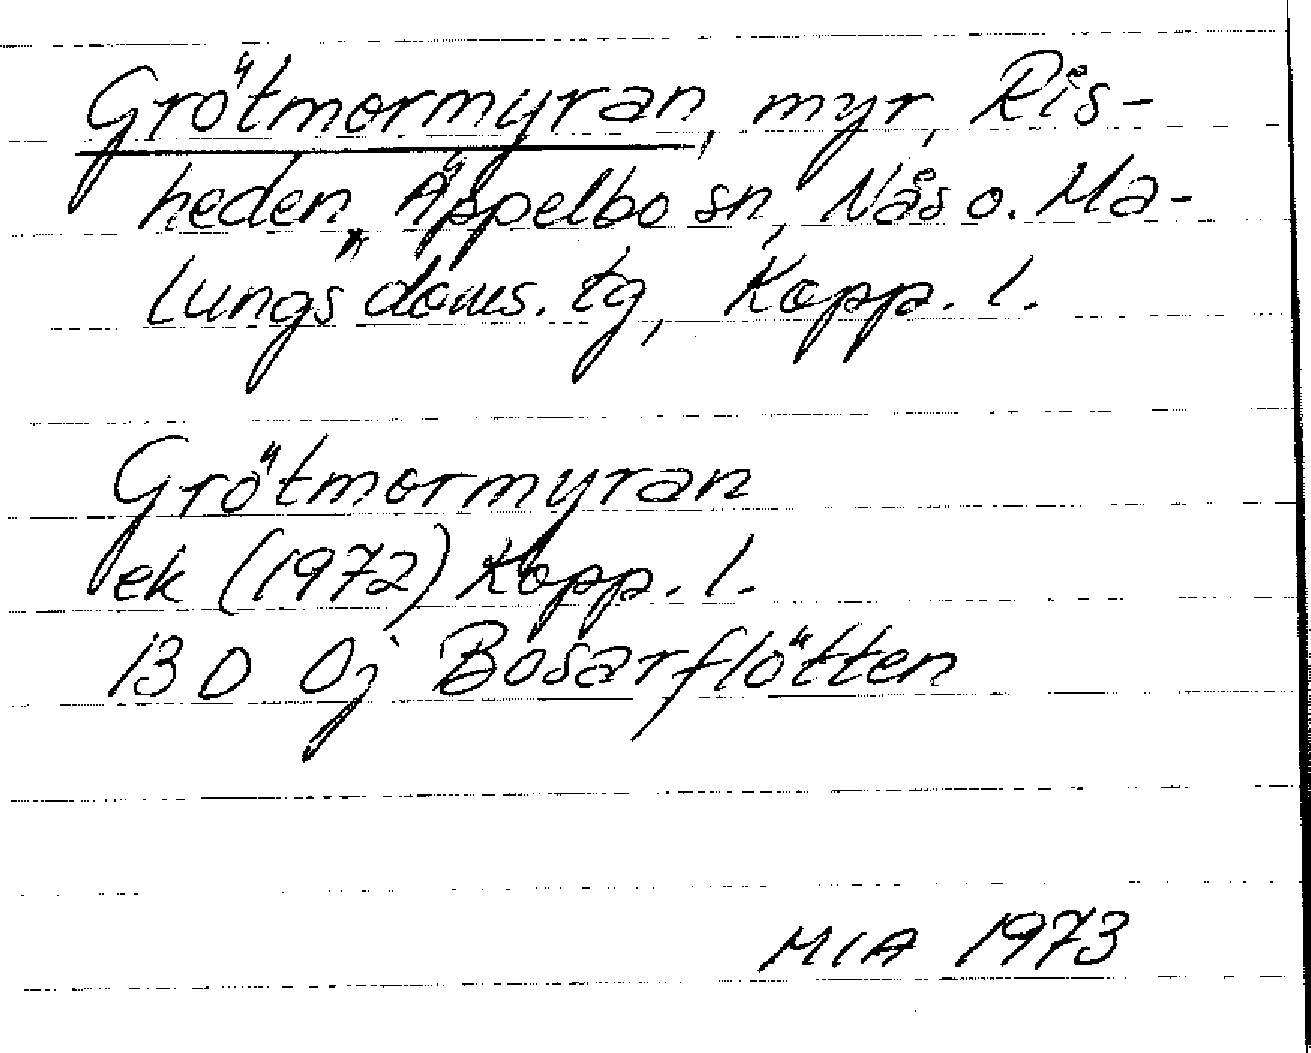 Grötmormyran, myr, Ris-
heden, Äppelbo sn, Nås o. Ma-
lungs doms. tg, Kopp. l.
Grötmormyran
ek (1972) Kopp. l.
13 D 0j Bosarflötten
MIA 1973